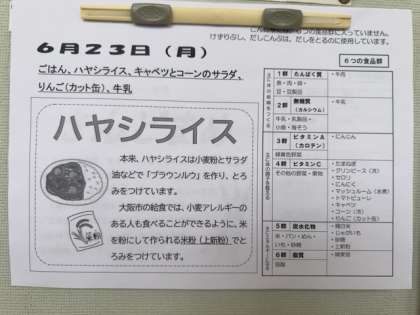 の食品群に入っていません。
けずりぶし、だしこんぶは、だしをとるのに使用しています。
6月23日（月）
ごはん、ハヤシライス、キャベツとコーンのサラダ、
りんご(カット缶)、牛乳
ハヤシライス
本来、ハヤシライスは小麦粉とサラダ
油などで「ブラウンルウ」を作り、とろ
みをつけています。
大阪市の給食では、小麦アレルギーの
ある人も食べることができるように、米
を粉にして作られる米粉（上新粉）でと
ろみをつけています。
米粉
6つの食品群
1群 たんぱく質
魚・肉・卵・
豆・豆製品
・牛肉
2群 無機質
(カルシウム)
牛乳・乳製品・
小魚・海そう
・牛乳
3群 ビタミンA
(カロテン)
緑黄色野菜
・にんじん
4群 ビタミンC
その他の野菜・果物
・たまねぎ
・グリンピース（冷）
・セロリ
・にんにく
・マッシュルーム（水煮）
・トマトピューレ
・キャベツ
・コーン（冷）
・りんご（カット缶）
5群 炭水化物
米・パン・めん・
いも・砂糖
・精白米
・じゃがいも
・砂糖
・上新粉
6群 脂質
油脂
・綿実油